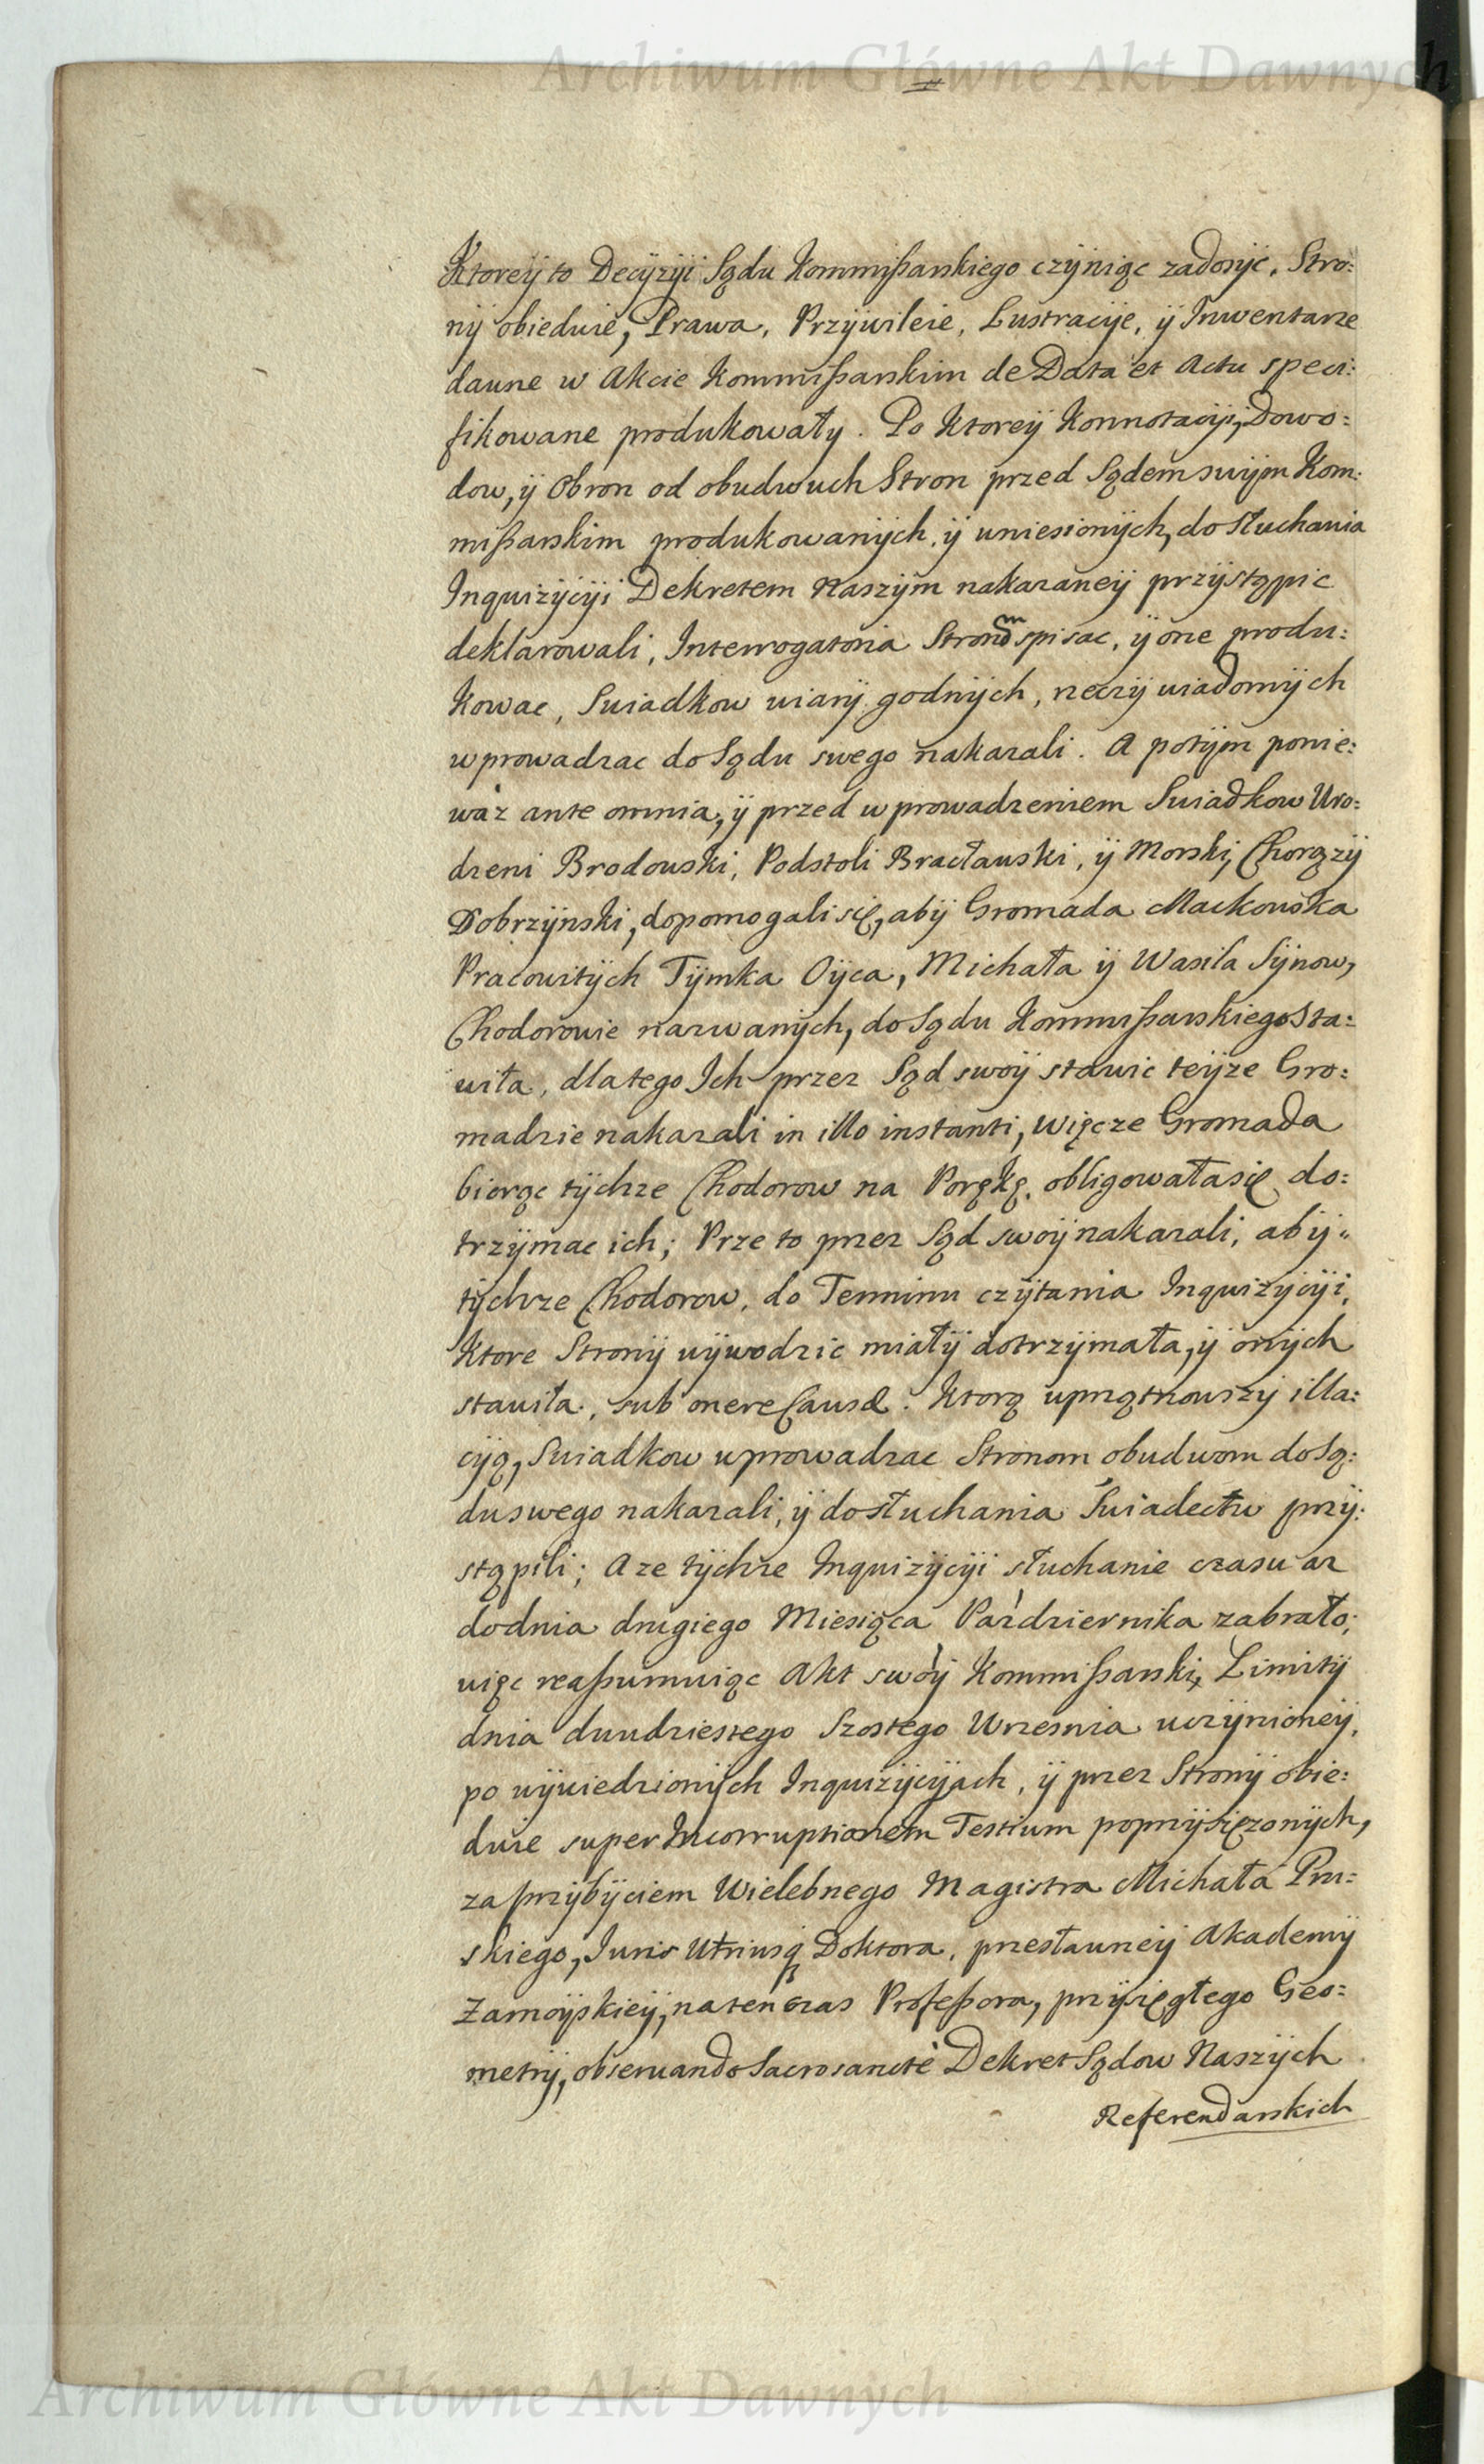 Archiwum Główne Akt Dawnych
Ktoreÿ to Decÿzÿi Sądu Kommißarskiego czÿniąc zadosÿc, Stro:
nÿ obiedwie, Prawa, Przÿwileie, Lustracÿe, ÿ Inwentarze
dawne w Akcie Kommißarskim de Data et Actu speci:
fikowane produkowały. Po Ktoreÿ Konnotacÿi, Dowo:
dow, ÿ Obron od obudwuch Stron przed Sądem swÿm Kom:
mißarskim produkowanÿch, ÿ wniesionÿch, do słuchania
Inquizÿcÿi Dekretem Naszÿm nakazaneÿ przÿstąpic
deklarowali, Interrogatoria Stronom spisac, ÿ one produ:
kowac, Swiadkow wiarÿ godnÿch, rzeczÿ wiadomÿch
wprowadzac do Sądu swego nakazali. A potÿm ponie:
waz ante omnia, ÿ przed wprowadzeniem Swiadkow Uro:
dzeni Brodowski, Podstoli Bracławski, ÿ Morski, Chorązÿ
Dobrzÿnski, dopomogali się, abÿ Gromada Mackowska
Pracowitÿch Tÿmka Oÿca, Michała ÿ Wasila Sÿnow,
Chodorowie nazwanÿch, do Sądu Kommißarskiego sta:
wiła, dla tego Ich przez Sąd swoÿ stawic teÿze Gro:
madzie nakazali in illo instanti, więc ze Gromada
biorąc tÿchze Chodorow na Porękę, obligowała się do:
trzÿmac ich; Prze to przez Sąd swoÿ nakazali, abÿ
tÿchze Chodorow, do Terminu czÿtania Inquizÿcÿi,
Ktore Stronÿ wÿwodzic miałÿ dotrzÿmała, ÿ onÿch
stawiła, sub onere Causæ. Ktorą uprzątnowszÿ illa:
cÿą, Swiadkow wprowadzac Stronom obudwom do Są:
du swego nakazali, ÿ do słuchania Swiadectw przÿ:
stąpili; A ze tÿchze Inquizÿcÿi słuchanie czasu az
do dnia drugiego Miesiąca Pazdziernika zabrało;
więc reaßumuiąc Akt swóÿ Kommißarski, Limitÿ
dnia dwudziestego Szostego Wrzesnia uczÿnioneÿ,
po wÿwiedzionÿch Inquizÿcÿach, ÿ przez Stronÿ obie:
dwie super Incorruptionem Testium poprzÿsiężonÿch,
za przÿbÿciem Wielebnego Magistra Michała Pru:
skiego, Iuris Utriusq Doktora, przesławneÿ Akademÿ
Zamoÿskieÿ, na ten czas Profeßora, przÿsięgłego Geo:
metrÿ, observando Sacrosancté Dekret Sądow Naszÿch
Referendarskich
Archiwum Główne Akt Dawnych